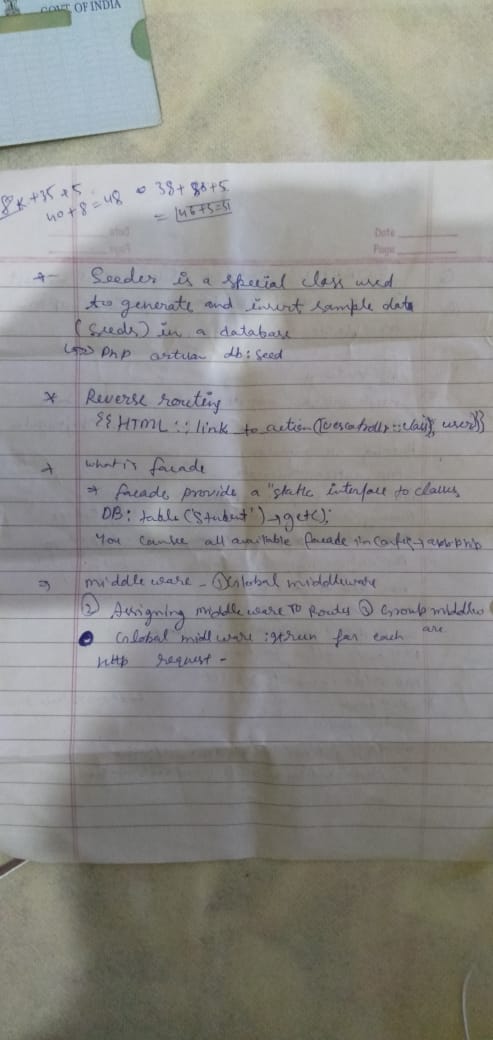 GOVT OF INDIA
8k+35+5
40+8=48
38+86+5
= 46+5=51
Date
Page
Seeder is a special class used
to generate and insert sample data
(seeds) in a database
PhP artisan db:seed
* Reverse routing
{{ HTML::link_to_action([
what is facade
facade provide a "static interface to classes
DB: table('Student')→get();
You can see all available facade in config→app.php
⇒ middle ware - ① Global middleware
② Assigning middleware To Routes ③ Group middleware
Global middleware: it run for each
http request -